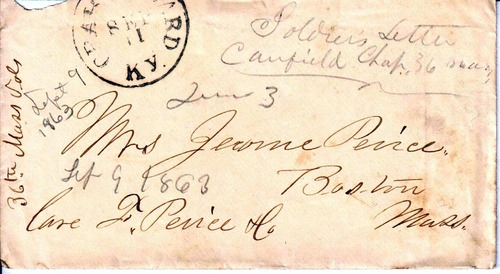 CRAB ORCHARD KY
SEP
11
Soldiers Letter
Canfield Chap. 36 Mass
36th Mass Vols
Sept 9
1863
Due 3
Mrs Jerome Peirce.
Sept 9 1863
Boston
Care F. Peirce & Co
Mass.